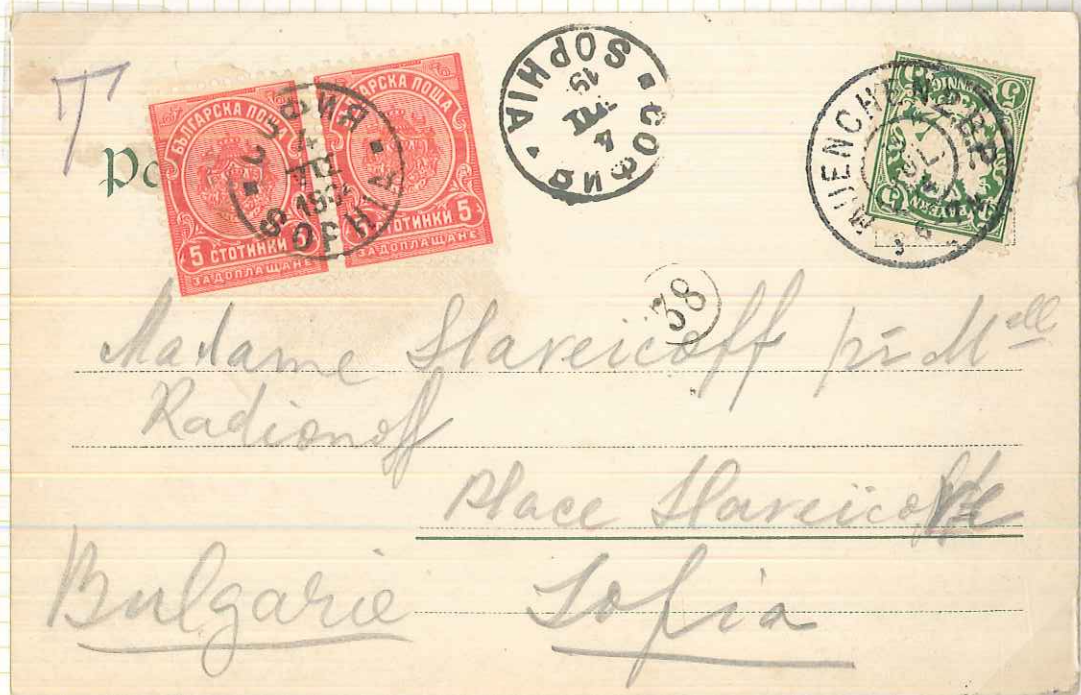 T
БЪЛГАРСКА ПОЩА
5 СТОТИНКИ 5
ЗА ДОПЛАЩАНЕ
БЪЛГАРСКА ПОЩА
СТОТИНКИ 5
ЗА ДОПЛАЩАНЕ
СОФИЯ
SOPHIA
СОФИЯ
SOPHIA
19
VII
4
MUENCHEN
5
PFENNIG
BAYERN
Po
38
Madame Slaveicoff pr Mlle
Radionoff
Place Slaveicoff
Bulgarie Sofia